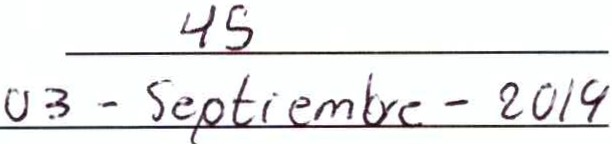 45
03 - Septiembre - 2019